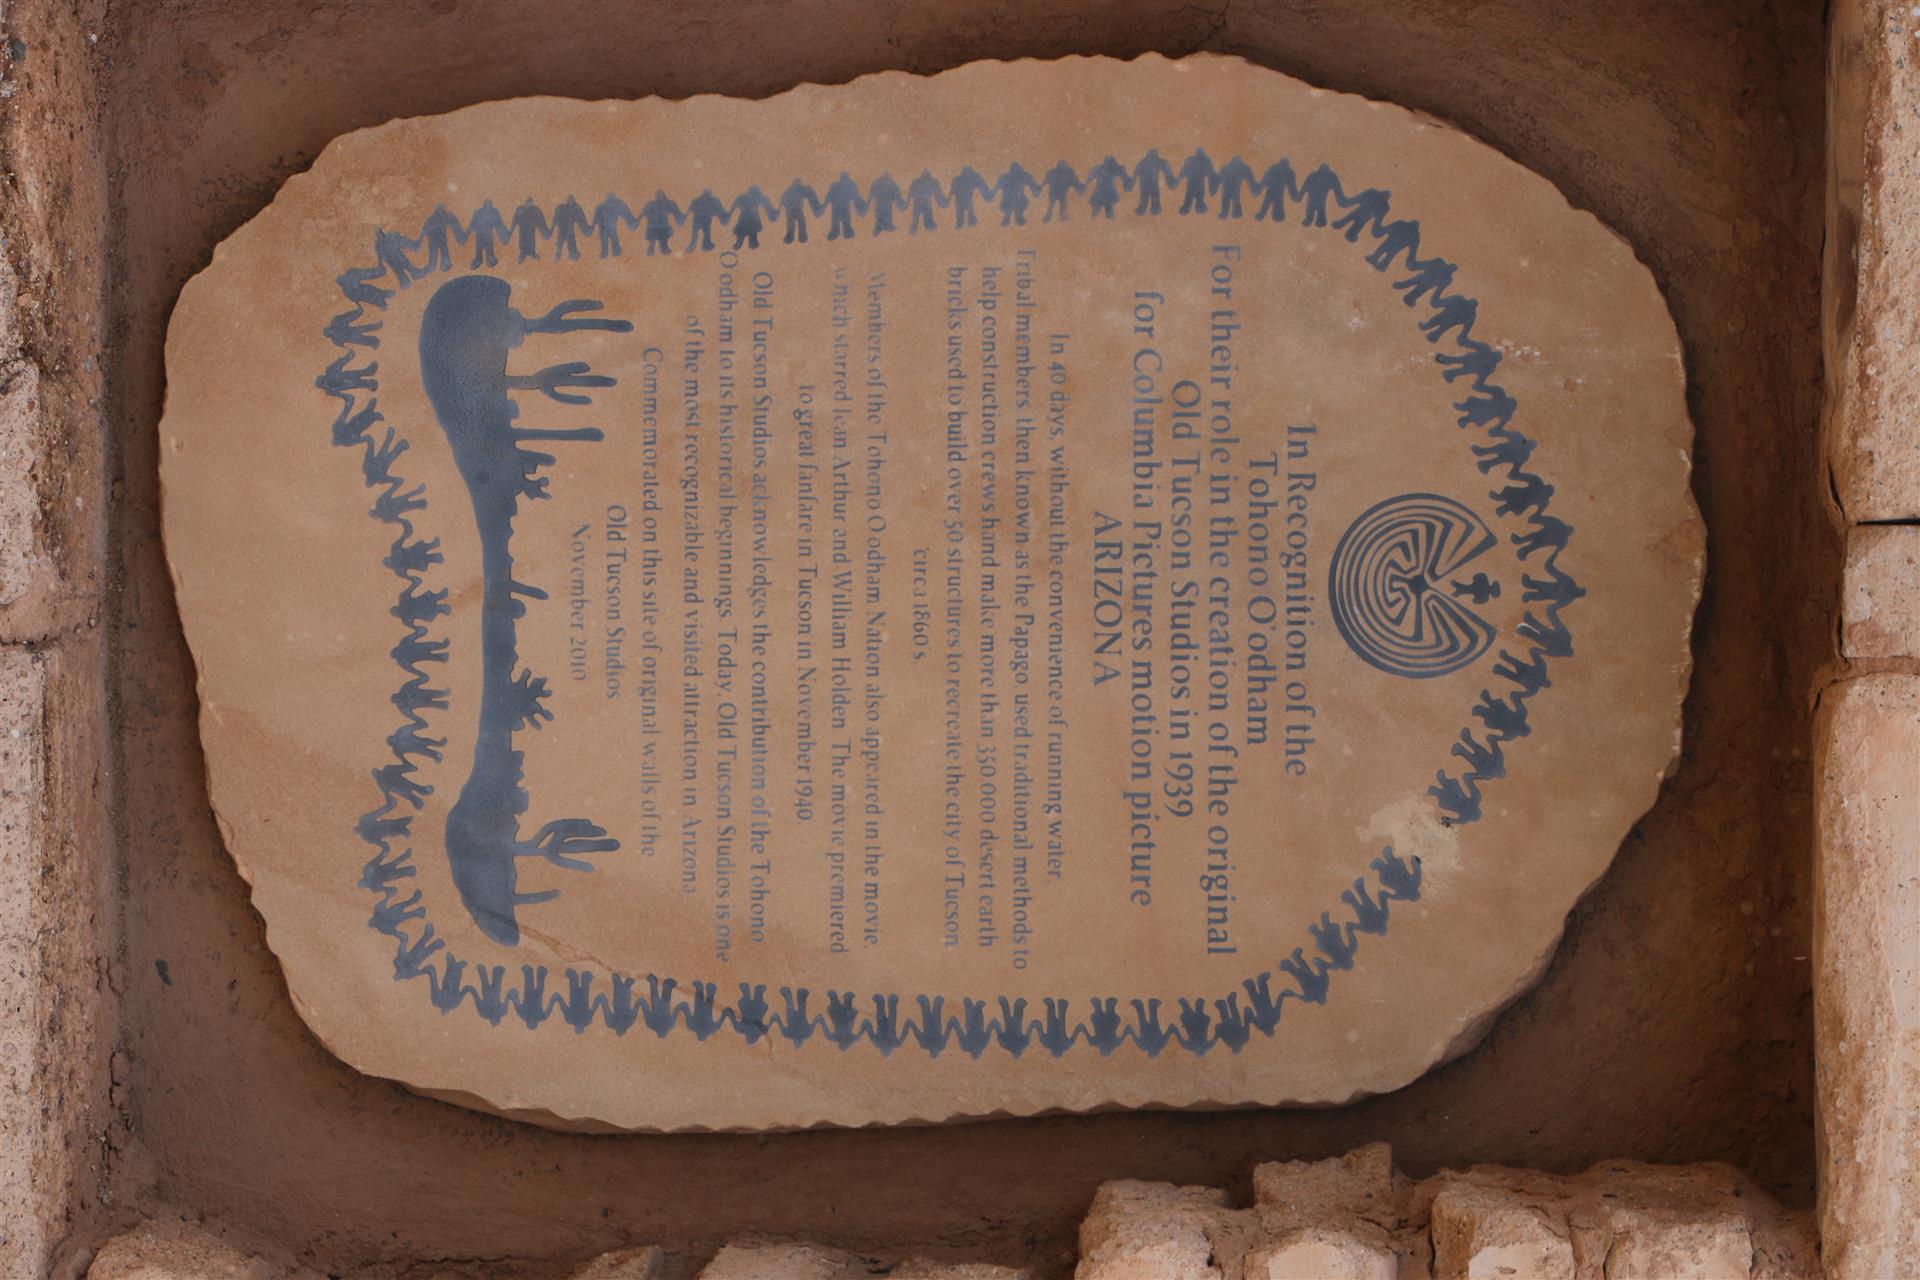 In Recognition of the
Tohono O'odham
For their role in the creation of the original
Old Tucson Studios in 1939
for Columbia Pictures motion picture
ARIZONA
In 40 days, without the convenience of running water,
Tribal members, then known as the Papago, used traditional methods to
help construction crews hand make more than 350,000 desert earth
bricks used to build over 50 structures to recreate the city of Tucson
'circa 1860's
Members of the Tohono O'odham Nation also appeared in the movie,
which starred Jean Arthur and William Holden. The movie premiered
to great fanfare in Tucson in November 1940.
Old Tucson Studios acknowledges the contribution of the Tohono
O'odham to its historical beginnings. Today, Old Tucson Studios is one
of the most recognizable and visited attraction in Arizona
Commemorated on this site of original walls of the
Old Tucson Studios
November 2010